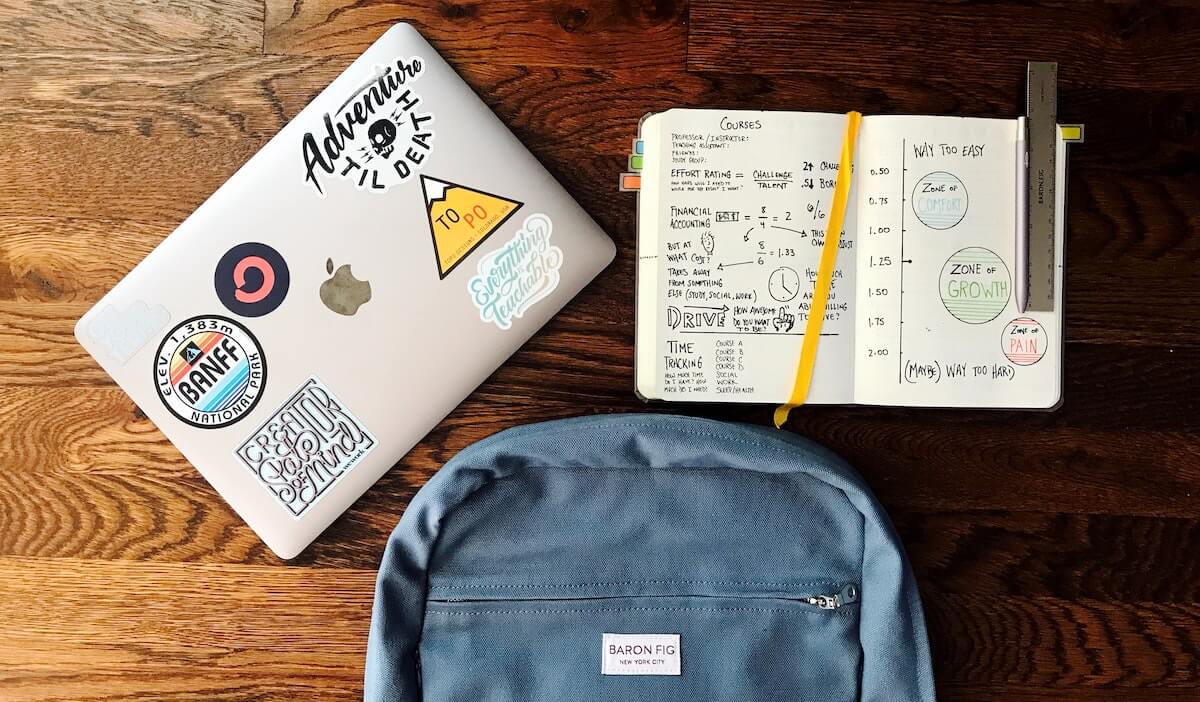 Adventure
TIL DEATH
TO PO
TOPO DESIGNS COLORADO, USA
Everything
is
Teachable
ELEV. 1,383m
BANFF
NATIONAL PARK
CREATOR
State
OF
mind
wework
COURSES
PROFESSOR / INSTRUCTOR:
TEACHING ASSISTANT:
FRIENDS:
STUDY GROUP:
EFFORT RATING = CHALLENGE
TALENT
HOW HARD WILL I NEED TO
WORK FOR THE RESULT I WANT.
2↑
.5↓
FINANCIAL
ACCOUNTING
= 8
4
= 2
6/6
BUT AT
WHAT COST?
8
6
= 1.33
TAKES AWAY
FROM SOMETHING
ELSE (STUDY, SOCIAL, WORK)
HOW MUCH
ARE YOU
DRIVE
HOW AWESOME
DO YOU WANT
TO BE?
TIME
TRACKING
HOW MUCH TIME
DO I HAVE? HOW
MUCH DO I NEED?
COURSE A
COURSE B
COURSE C
COURSE D
SOCIAL
WORK
SLEEP/HEALTH
WAY TOO EASY
0.50
0.75
1.00
1.25
1.50
1.75
2.00
ZONE OF
COMFORT
ZONE OF
GROWTH
ZONE OF
PAIN
(MAYBE) WAY TOO HARD
BARON FIG
BARON FIG
NEW YORK CITY